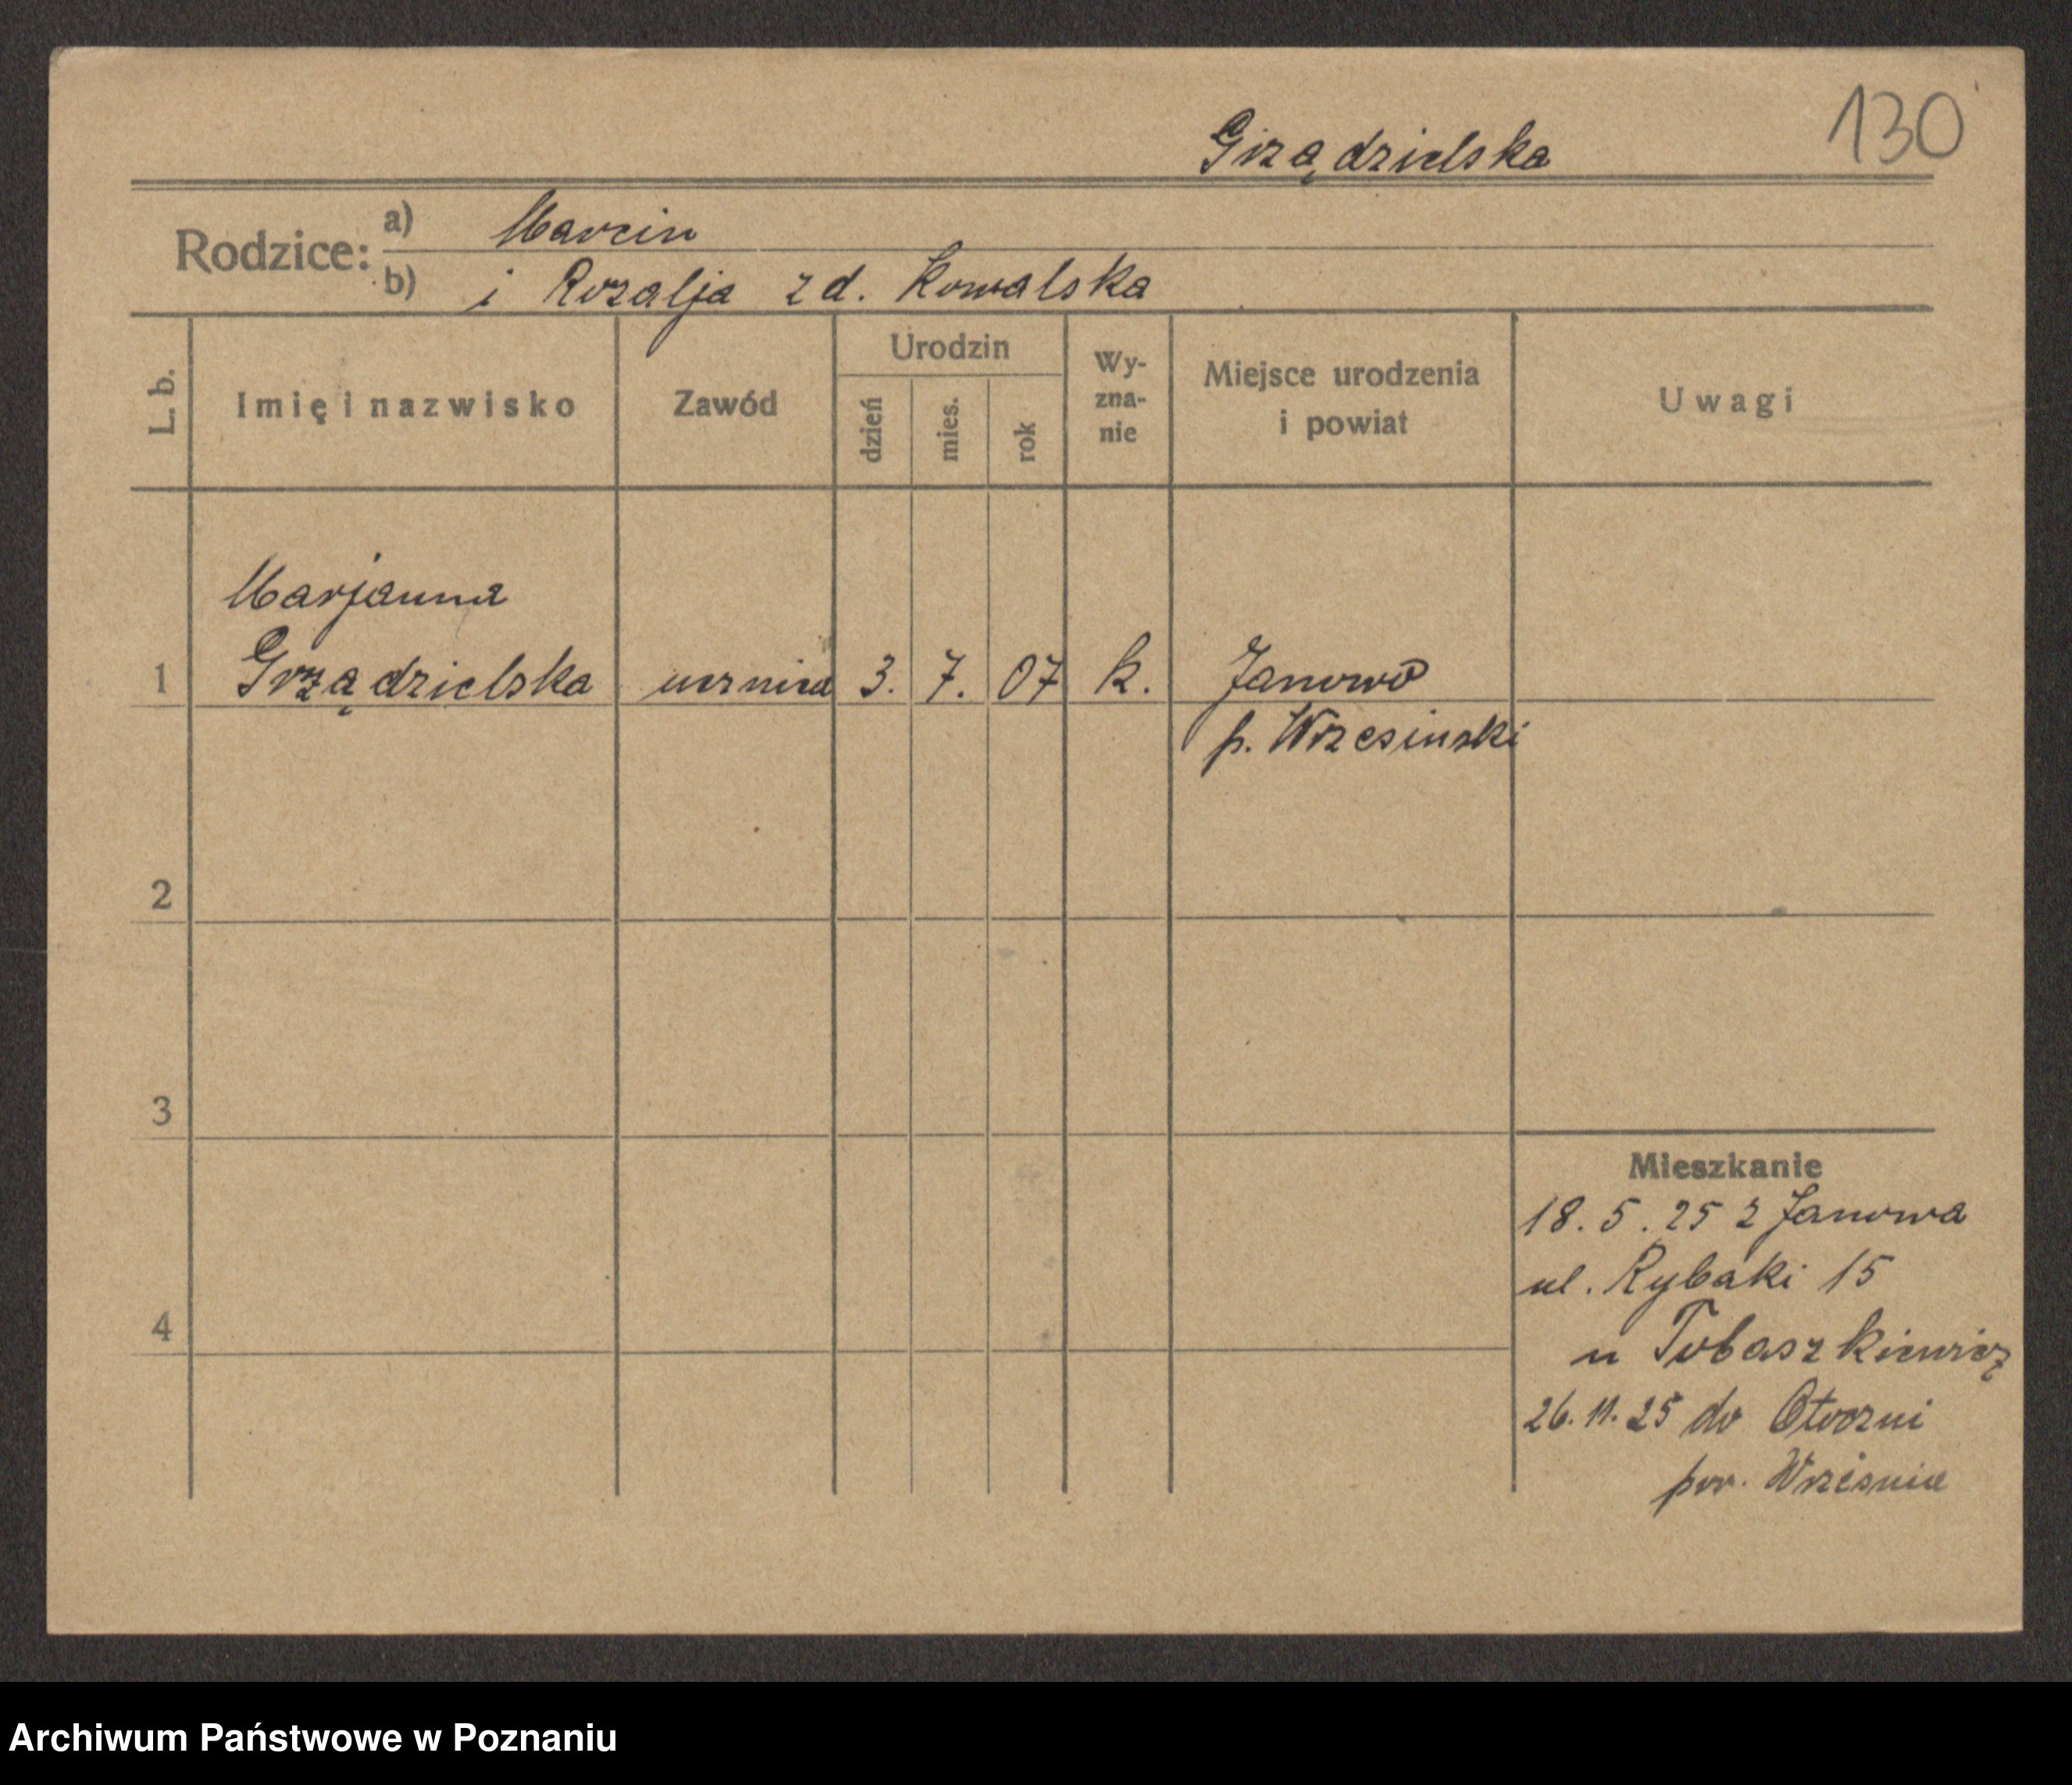 130
Grządzielska
Rodzice:
a) Marcin
b) i Rozalja z d. Kowalska
L. b.
Imię i nazwisko
Zawód
Urodzin
dzień
mies.
rok
Wy-
zna-
nie
Miejsce urodzenia
i powiat
Uwagi
Marjanna
1 Grządzielska ucznica 3. 7. 07 k. Janowo
p. Wrzesinski
2
3
4
Mieszkanie
18. 5. 25 z Janowa
ul. Rybaki 15
u Tobaszkiewicz
26. 11. 25 do Otoczni
pow. Września
Archiwum Państwowe w Poznaniu